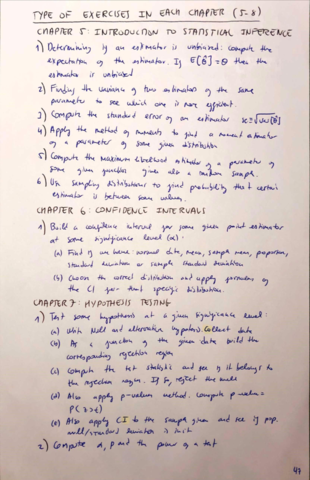 TYPE OF EXERCISES IN EACH CHAPTER (5-8)
CHAPTER 5: INTRODUCTION TO STATISTICAL INFERENCE
1) Determining if an estimator is unbiased: compute the
expectation of the estimator. If E[θ̂]=θ then the
estimator is unbiased
2) Finding the variance of two estimators of the same
parameter to see which one is more efficient.
3) Compute the standard error of an estimator se=√Var(θ̂)
4) Apply the method of moments to find a moment estimator
of a parameter of some given distribution
5) Compute the maximum likelihood estimator of a parameter of
some given variables given also a random sample.
6) Use sampling distributions to find probability that certain
estimator is between some values.
CHAPTER 6: CONFIDENCE INTERVALS
1) Build a confidence interval for some given point estimator
at some significance level (α):
(a) Find if we have normal data, mean, sample mean, proportion,
standard deviation or sample standard deviation
(b) Choose the correct distribution and apply formulas of
the CI for that specific distribution.
CHAPTER 7: HYPOTHESIS TESTING
1) Test some hypothesis at a given significance level:
(a) Write Null and alternative hypothesis. Collect data
(b) As a function of the given data build the
corresponding rejection region
(c) Compute the test statistic and see if it belongs to
the rejection region. If so, reject the null
(d) Also apply p-values method. Compute p-value=
(e) Also apply CI to the sample given and see if pop.
standard deviation is in it
2) Compute α, β and the power of a test
47